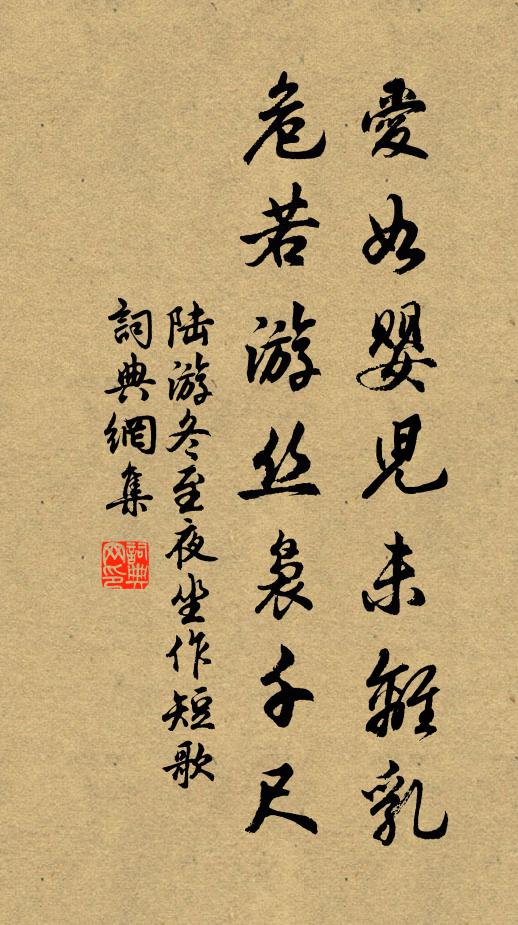 愛如嬰児未離乳
危若游丝裊千尺
陆游冬至夜坐作短歌
詞典網集
詞典網印